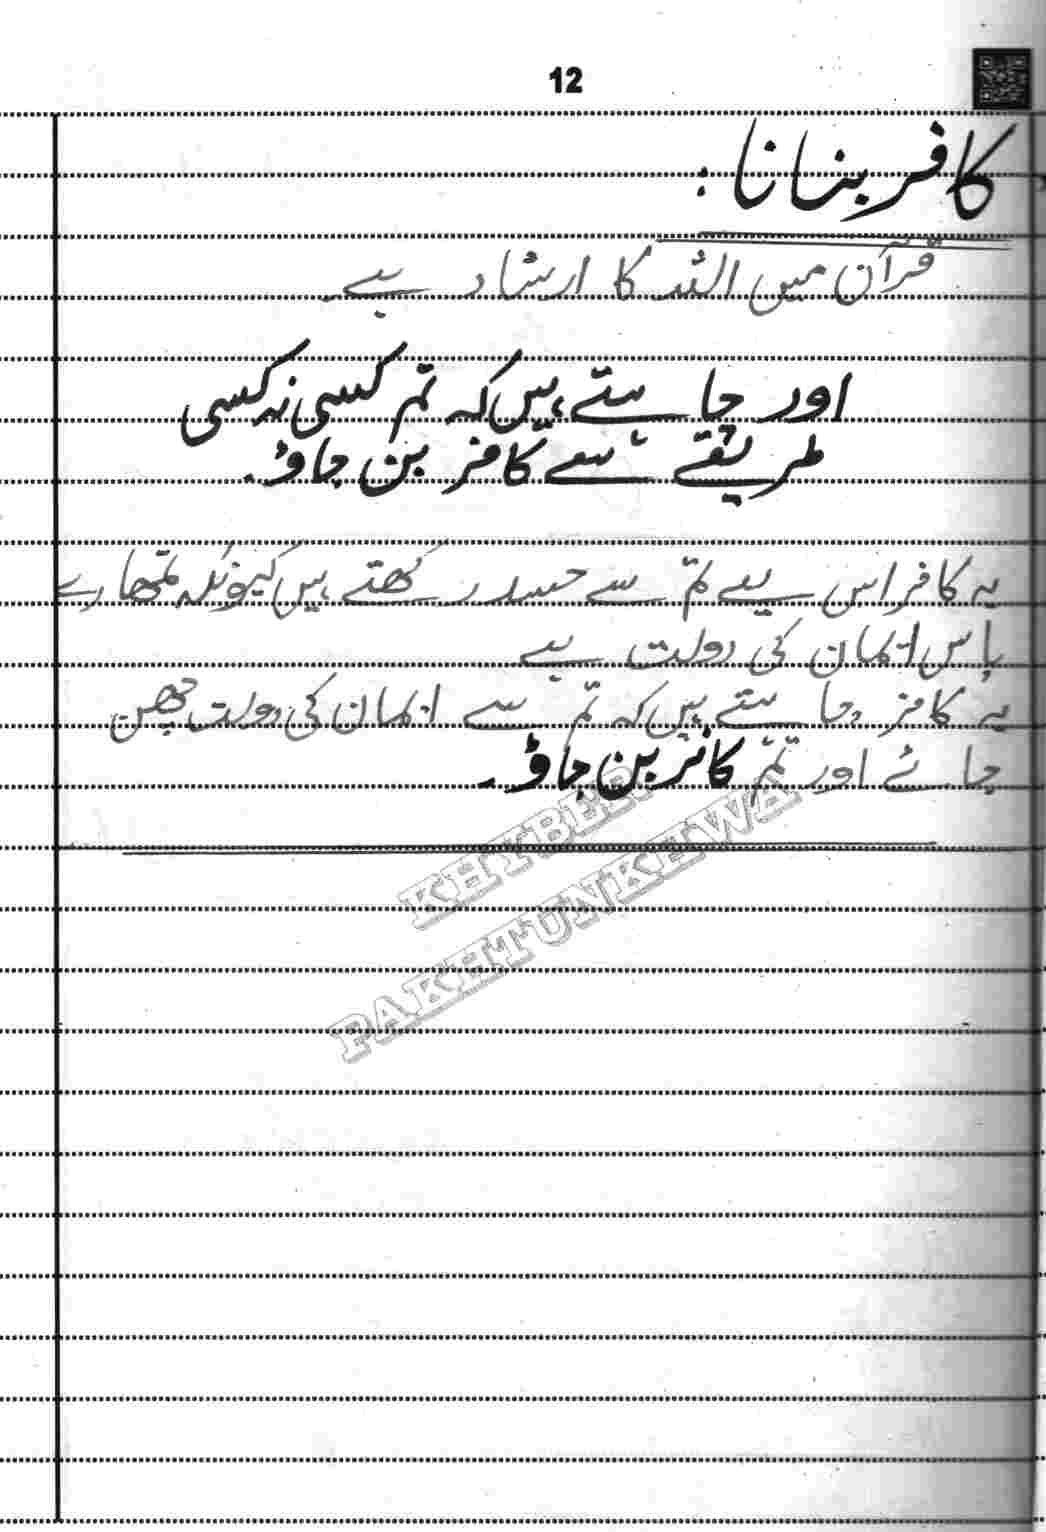 12
کافر بنانا :
قرآن میں اللہ کا ارشاد ہے۔
اور چاہتے ہیں کہ تم کسی نہ کسی
طریقے سے کافر بن جاؤ۔
یہ کافر اس لیے تم سے حسد رکھتے ہیں کیونکہ تمھارے
پاس ایمان کی دولت ہے
یہ کافر چاہتے ہیں کہ تم سے ایمان کی دولت چھن
جائے اور تم کافر بن جاؤ۔
KHYBER
PAKHTUNKHWA